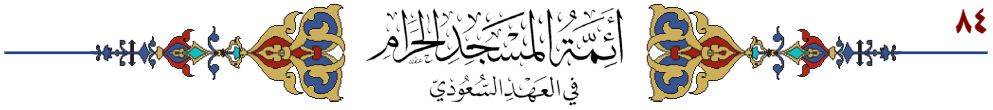 ٨٤
أَئِمَّةُ المَسْجِدِ الحَرَامِ
فِي العَهْدِ السُّعُودِيّ